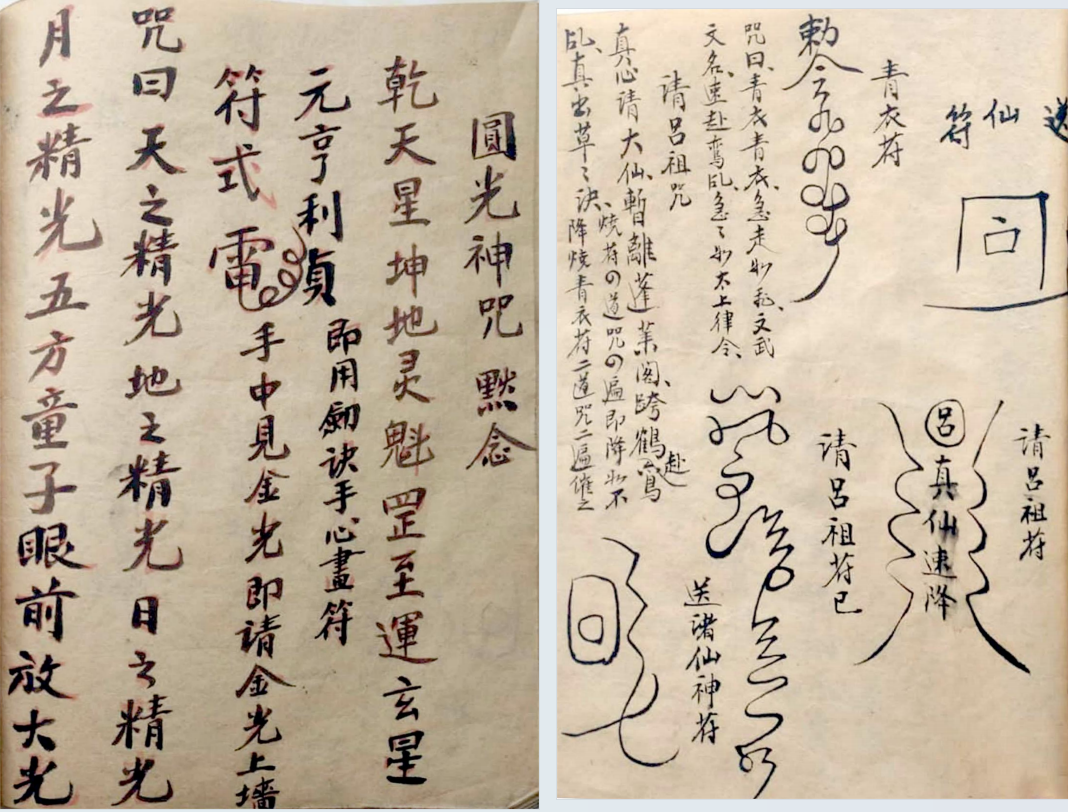 圓光神咒 默念
乾天星坤地灵魁罡至運玄星
元亨利貞 即用劒訣手心畫符
符式 電 手中見金光即請金光上墻
咒曰 天之精光地之精光 日之精光
月之精光五方童子眼前放大光
送仙符
请吕祖符
吕真仙速降
青衣符
请吕祖符已
勅令
咒曰、青衣青衣、急走如飛、文武
文名、速赴鸾乩、急々如太上律令、
送诸仙神符
请吕祖咒
真心请大仙、暫離蓬莱阁、跨鹤赴鸾
乩、真出草々訣、烧符の道咒の遍即降如不
降烧青衣符二道咒二遍催之